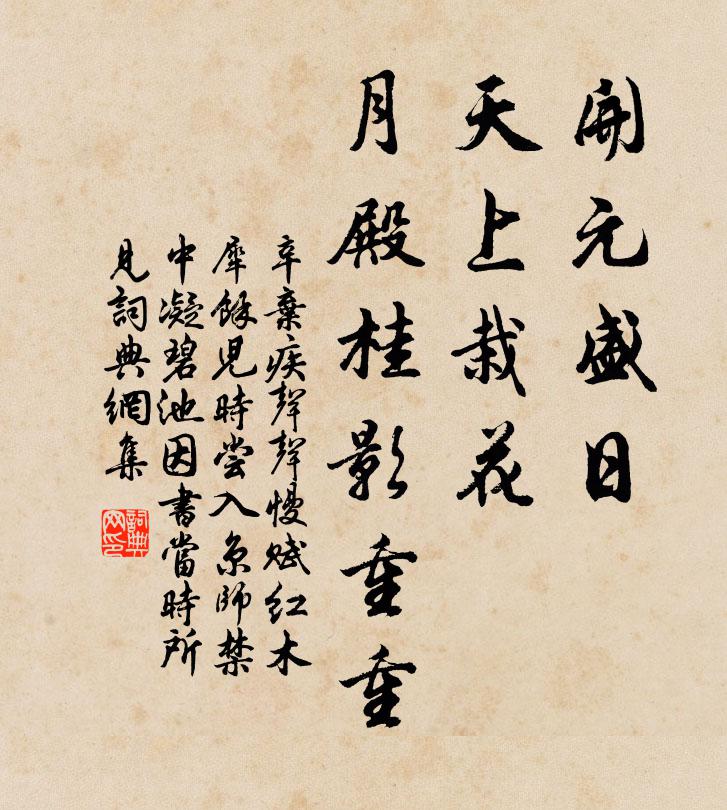 開元盛日
天上栽花
月殿桂影重重
辛棄疾聲聲慢賦紅木
犀餘兒時嘗入京師禁
中凝碧池因書當時所
見詞典網集
詞典
网印